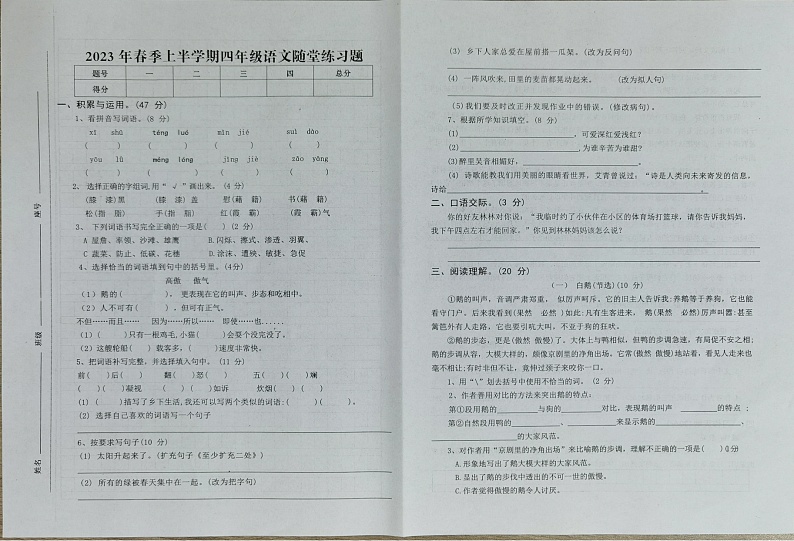 2023年春季上半学期四年级语文随堂练习题
题号 一 二 三 四 总分
得分
一、积累与运用。(47 分)
1、看拼音写词语。(8 分)
xī shū téng luó mǐn jié suì dào
( ) ( ) ( ) ( )
yōu lǜ méng lóng jīng jiè zāo yāng
( ) ( ) ( ) ( )
2、选择正确的字组词,用“ √ ”画出来。(4 分)
(膝 漆)黑 (膝 漆) 盖 慰(藉 籍) 书(藉 籍)
松(指 脂) 手(指 脂) 红(霞 霸) (霞 霸)气
3、下列词语书写完全正确的一项是( ) (2 分)
A 屋詹、率领、沙滩、雄鹰 B.闪烁、擦式、渗透、羽翼、
C 蔬菜、防止、低碳、花穗 D.涂沫、遭殃、敏捷、急促
4、选择恰当的词语填到句中的括号里。(4分)
高傲 傲气
(1)鹅的( ), 更表现在它的叫声、步态和吃相中。
(2)人不可有( ),但可有正气。
不但……而且…… 因为……所以…… 即使……也......
(1)( )只有一根鸡毛,小猫( )会耍个没完没了。
(2)这艘轮船( )载客多,( )速度非常快。
5、把词语补写完整,并选择填入句中。(11 分)
前( )后( ) 翻( )怒( ) 五( )( )斓
( )( )凝视 ( )( )如诉 炊烟( )( )
(1)( )描写了乡下生活,我还可以写两个类似的词语:( )( )。
(2)选择自己喜欢的词语写一个句子
6、按要求写句子(10 分)
(1) 太阳升起来了。(扩充句子《至少扩充二处》)
(2) 所有的绿被春天集中在一起。(改为把字句)
座号
班级
姓名
(3) 乡下人家总爱在屋前搭一瓜架。(改为反问句)
(4) 一阵风吹来,田里的麦苗都晃动起来。 (改为拟人句)
(5)我们要及时改正并发现作业中的错误。(修改病句)。
7、根据所学知识填空。(8 分)
(1) ,可爱深红爱浅红?
(2) ,为谁辛苦为谁甜?
(3)醉里吴音相媚好, 。
(4) 诗歌能教我们用美丽的眼睛看世界,艾青曾说过:“诗是人类向未来寄发的信息,
诗给 。
二、口语交际。(3 分)
你的好友林林对你说:“我临时约了小伙伴在小区的体育场打篮球,请你告诉我妈妈,
我下午四点左右才能回家。”你见到林林妈妈该怎么说?
三、阅读理解。(20 分)
(一) 白鹅(节选)(10 分)
①鹅的叫声,音调严肃郑重, 似厉声呵斥。它的旧主人告诉我:养鹅等于养狗,它也能
看守门户。后来我看到(果然 必然)如此:凡有生客进来, 鹅(果然 必然)厉声叫嚣;甚至
篱笆外有人走路,它也要引吭大叫,不亚于狗的狂吠。
②鹅的步态,更是(傲然 傲慢)了。大体上与鸭相似,但鸭的步调急速,有局促不安之相;
鹅的步调从容,大模大样的,颇像京剧里的净角出场。它常(傲然 傲慢)地站着,看见人走来也
毫不相让;有时非但不让,竟伸过颈子来咬你一口。
1、用“\”划去括号中使用不恰当的词。(2 分)
2、作者善用对比的方法来突出鹅的特点:
第①段用鹅的 与狗的 对比,表现鹅的叫声 的特点 ;
第②自然段用鸭的 、 来显示鹅的 、
的大家风范。
3、对作者用“京剧里的净角出场”来比喻鹅的步调,理解不正确的一项是( )()分
A.形象地写出了鹅大模大样的大家风范。
B.显出了鹅的步伐中透出的不可一世的傲慢。
C.作者觉得傲慢的鹅令人讨厌。